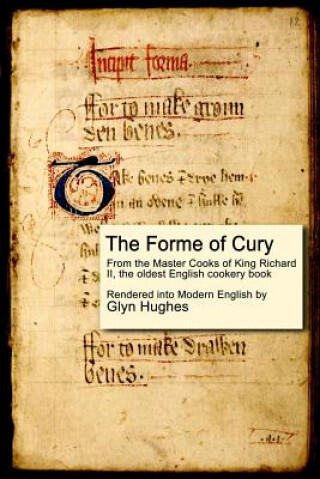 12
Incipit forma.
ffor to make groun
den benes.
Take benes & drye hem
in an ovene & hulle he
The Forme of Cury
From the Master Cooks of King Richard
II, the oldest English cookery book
Rendered into Modern English by
Glyn Hughes
ffor to make drawen
benes.